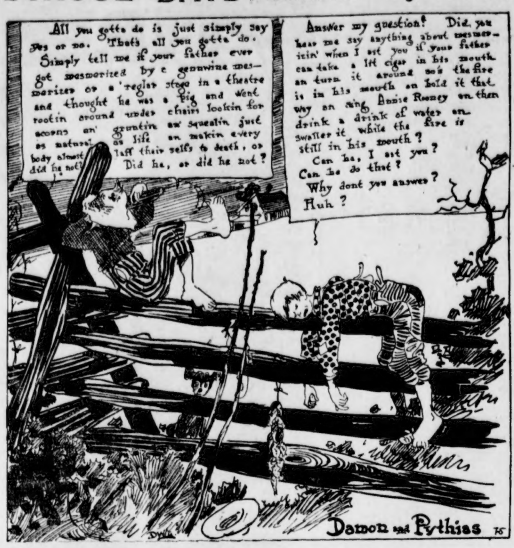 All you gotta do is just simply say
yes or no. That's all you gotta do.
Simply tell me if your father ever
got mesmerized by a genuwine mes-
merizer on a 'reglar stage in a theatre
and thought he was a pig and went
rootin around under chairs lookin for
acorns an' gruntin an squealin just
as natural as life an makin every
body almost laff their selfs to death, or
did he not?
Did he, or did he not?
Answer my question! Did you
hear me say anything about mesmer-
izin' when I ast you if your father
can take a lit cigar in his mouth
an turn it around so's the fire
is in his mouth an hold it that
way an sing Annie Rooney an then
drink a drink of water an
swaller it while the fire is
still in his mouth?
Can he, I ast you?
Can he do that?
Why dont you answer?
Huh?
DWIG
Damon and Pythias